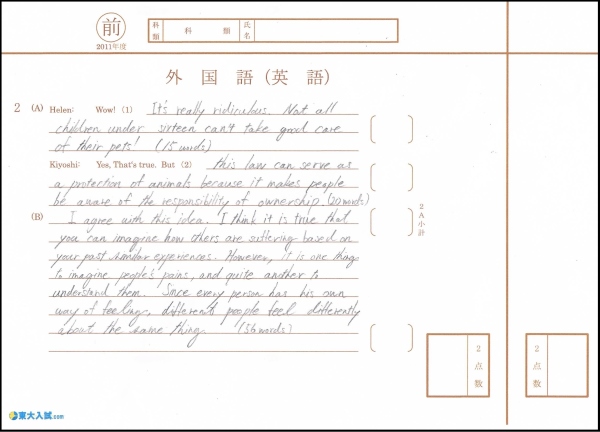 前
2011年度
科類 科類 氏名
外国語(英語)
2 (A) Helen: Wow! (1) It's really ridiculous. Not all
children under sixteen can't take good care
of their pets! (15 words)
Kiyoshi: Yes, That's true. But (2) this law can serve as
a protection of animals because it makes people
be aware of the responsibility of ownership. (20 words)
(B) I agree with this idea. I think it is true that
you can imagine how others are suffering based on
your past similar experiences. However, it is one thing
to imagine people's pains, and quite another to
understand them. Since every person has his own
way of feeling, different people feel differently
about the same thing. (56 words)
2A小計
2点数
2点数
東大入試.com